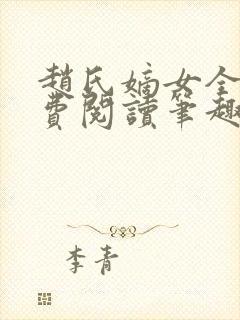 趙氏嫡女全
費閱讀筆趣
李青